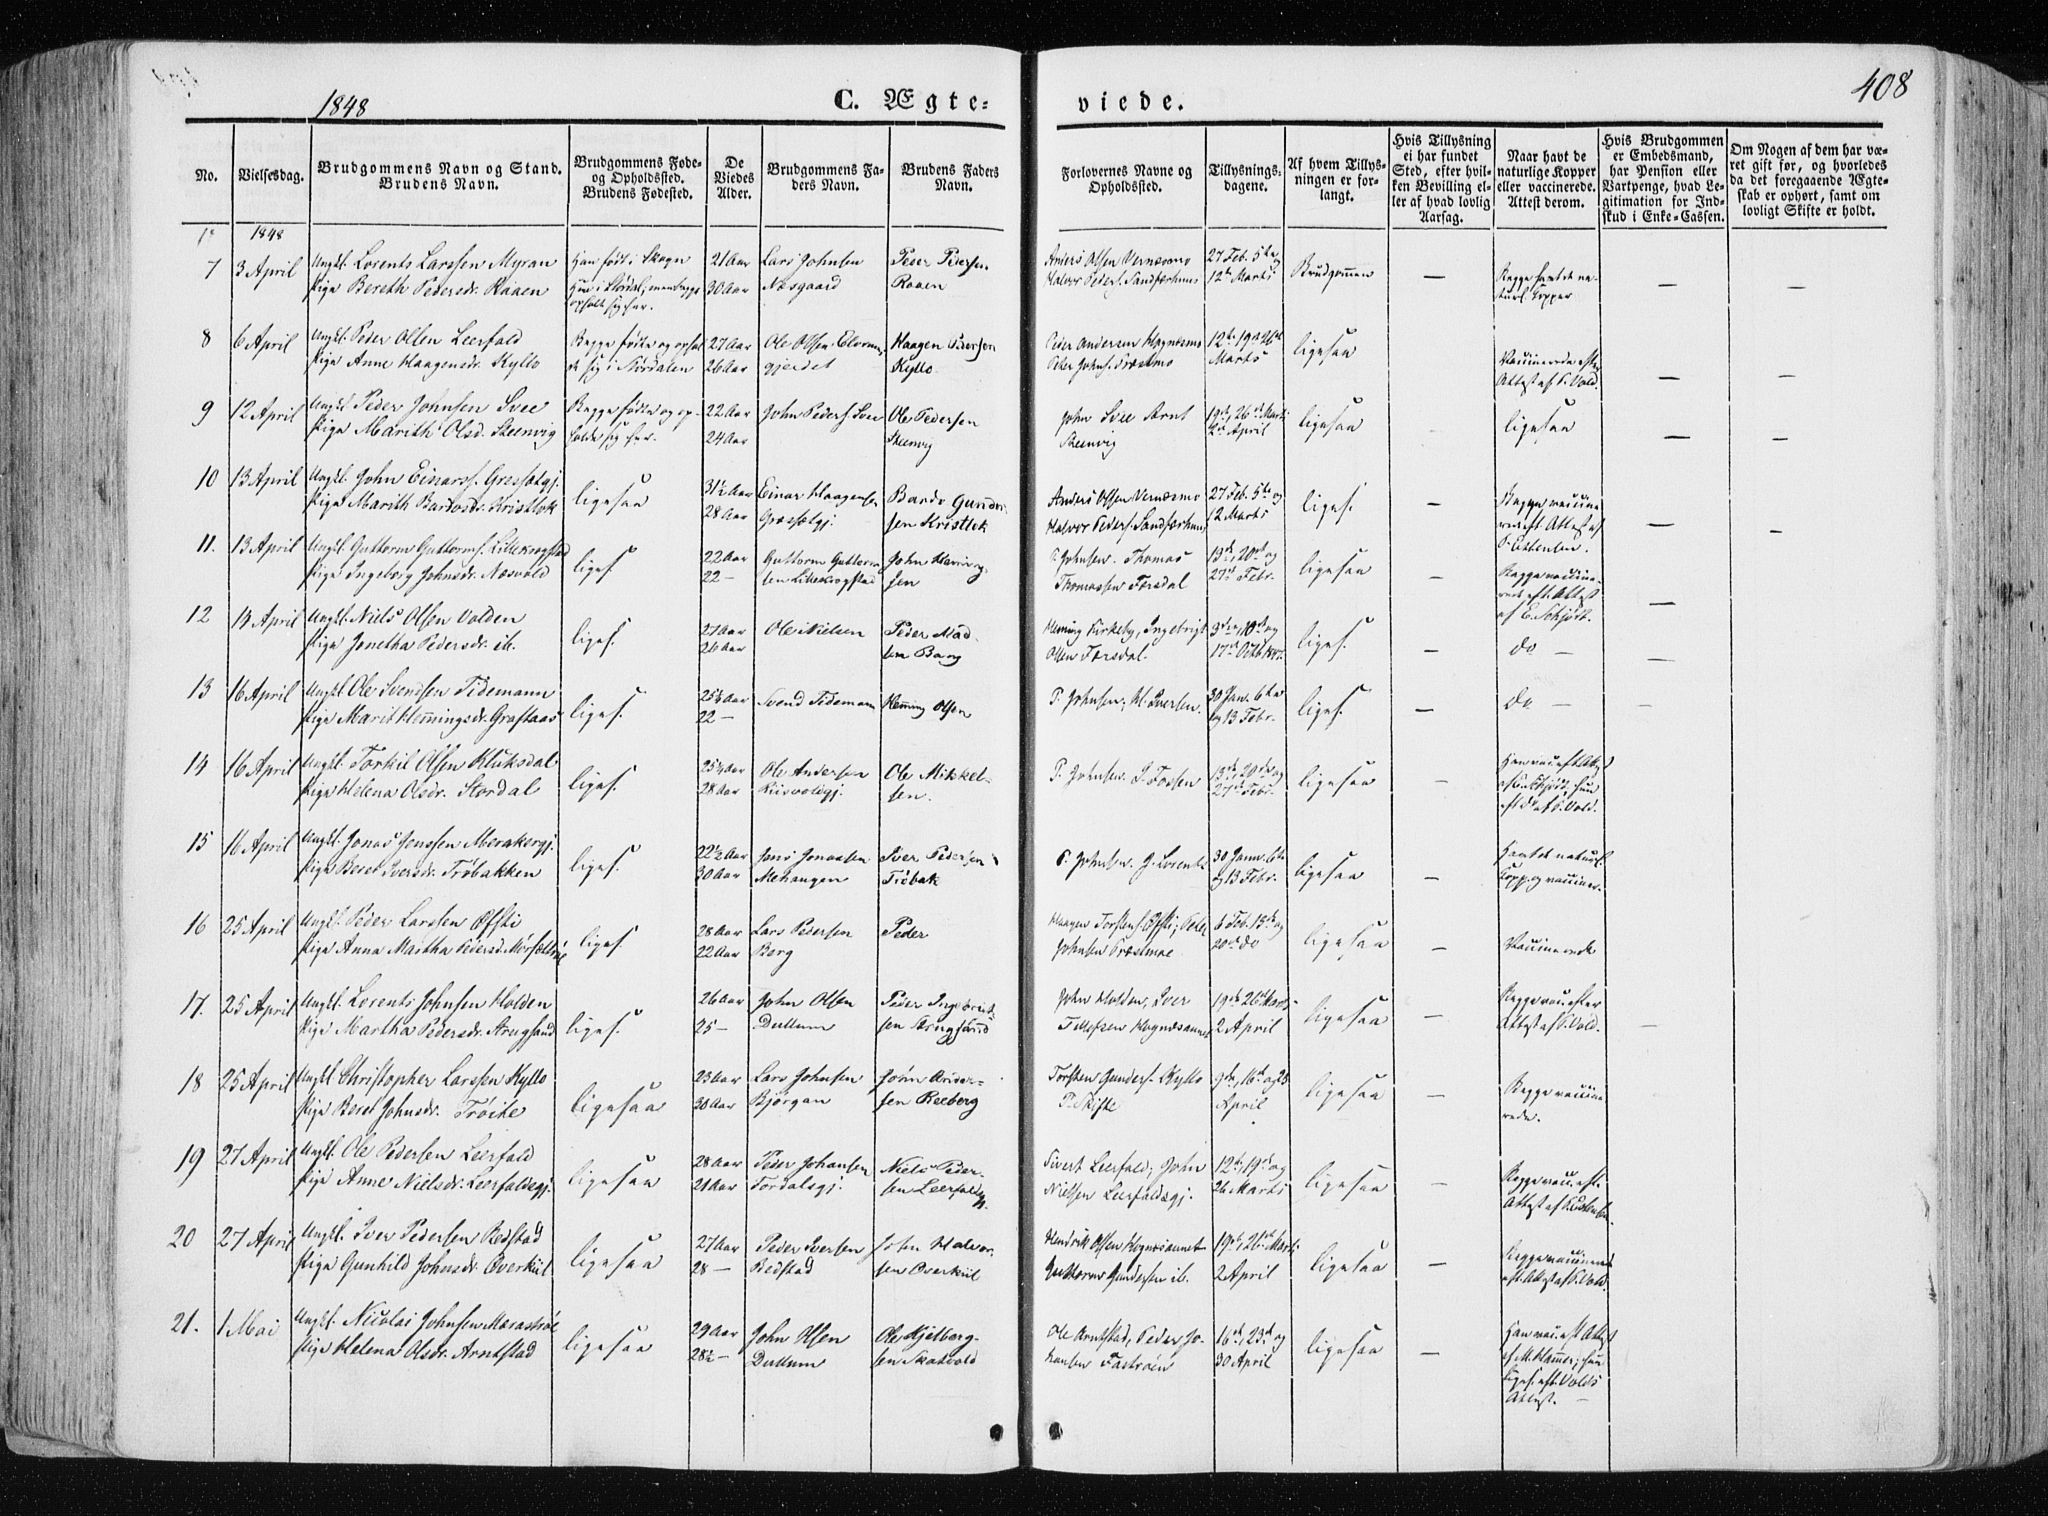 408
1848
C. Ægte-
viede.
No.
Vielsesdag.
Brudgommens Navn og Stand.
Brudens Navn.
Brudgommens Føde-
og Opholdssted.
Brudens Fødested.
De
Viedes
Alder.
Brudgommens Fa-
ders Navn.
Brudens Faders
Navn.
Forlovernes Navne og
Opholdssted.
Tillysnings-
dagene.
Af hvem Tillys-
ningen er for-
langt.
Hvis Tillysning
ei har fundet
Sted, efter hvil-
ken Bevilling el-
ler af hvad lovlig
Aarsag.
Naar havt de
naturlige Kopper
eller vaccinerede.
Attest derom.
Hvis Brudgommen
er Embedsmand,
har Pension eller
Vartpenge, hvad Le-
gitimation for Ind-
skud i Enke-Cassen.
Om Nogen af dem har væ-
ret gift før, og hvorledes
da det foregaaende Ægte-
skab er ophørt, samt om
lovligt Skifte er holdt.
1848
7 3 April Ungk. Lorents Larssen Myran
Pige Bereth Pedersdr. Raaen
Han født i Skogn
21 Aar
30 Aar
Lars Johnsen
Næsgaard
Peder Pedersen
Raaen
Anders Olsen Vernæsmo
Halvor Peders. Sandferhuus
27 Feb. 5te og
12te Marts
Brudgommen
— Begge havt de na-
turl. Kopper — —
8 6 April Ungk. Peder Olsen Leerfald
Pige Anne Haagensdr. Kyllo
Begge fødte og ophol-
de sig i Stördalen
27 Aar
26 Aar
Ole Olsen
gjerdet
Haagen Pedersen
Kyllo
Peder Andersen Hognesmo
Peter Johns. Præstmo
12te, 19de 26de
Marts
ligesaa
Vaccinerede efter
Attest af P. Vold. — —
9 12 April Ungk. Peder Johnsen Svee
Pige Marith Olsd. Steenvig
Begge fødte og op-
holde sig her.
22 Aar
24 Aar
John Peders. Svee
Ole Pedersen
Steenvig
John Svee Arnt
Steenvig
19de, 26de Marts
2den April
ligesaa
ligesaa — —
10 13 April Ungk. John Einars. Græssetgj.
Pige Marith Bardosdr. Kristlok
ligesaa
31½ Aar
28 Aar
Einar Haagensen
Græssetgj.
Bardo Gunder-
sen Kristlok
Anders Olsen Vernæsmo
Halvor Peders. Sandferhuus
27 Feb. 5te og
12 Marts
liges. —
Begge vaccine-
rede eft. Attest af
— —
11. 13 April Ungk. Guttorm Guttorms. Lillekrogstad
Pige Ingeborg Johnsdr. Næsvold
liges.
22 Aar
22 —
Guttorm Guttorm-
sen Lillekrogstad
John
sen
P. Johnsen. Thomas
Thomassen Forsdal
13de, 20de og
27de Febr.
ligesaa —
Begge vaccine-
rede eft. Attest
af E. Schjört. —
12 14 April Ungk. Niels Olsen Volden
Pige Jonetha Pedersdr. ib.
liges.
27 Aar
26 Aar
Ole Nielsen
Peder Mad-
sen Bang
Heming Kirkeby, Ingebrigt
Olsen Forsdal.
3die, 10de og
17de Octb. 1847.
liges. — do — —
13 16 April Ungk. Ole Svendsen Tidemann
Pige Marit Hemingsdr. Graftaas
liges.
25½ Aar
22 —
Svend Tidemann
Heming Olsen
P. Johnsen, H. Iversen.
30 Jan. 6te
og 13 Febr.
liges. — do — —
14 16 April Ungk. Torkil Olsen Kluksdal
Pige Helena Olsdr. Stordal
liges.
25½ Aar
28 Aar
Ole Andersen
Ole Mikkel-
sen.
P. Johnsen. J. Torsen
13de, 20de og
27de Febr.
ligesaa —
15 16 April Ungk. Jonas Jenssen Merakergj.
Pige Beret Iversdr. Tröbakken
liges.
22½ Aar
30 Aar
Jens Jonassen
Mehaugen
Iver Pedersen
Tröbak
P. Johnsen. J. Lorents
30 Jann. 6te
og 13 Febr.
ligesaa —
Han havt naturl.
Kopp. og vacciner.
16 25 April Ungk. Peder Larssen Öfsti
Pige Anna Martha Pedersd.
liges.
28 Aar
22 Aar
Lars Pedersen
Berg
Peder
Haagen Torstens. Öfsti, Peter
Johnsen Præstmoe
6 Feb. 13de og
20de do
ligesaa — Vaccinerede
17. 25 April Ungk. Lorents Johnsen Holden
Pige Martha Pedersdr. Strugsand
liges.
26 Aar
25 —
John Olsen
Dullum
Peder Ingebrigt-
sen Strugsand
John Holden, Iver
Tellefsen Hognæsaunet
19de, 26de Marts
2 April
ligesaa —
Begge vac. efter
Attest af P. Vold. —
18 25 April Ungk. Christopher Larssen Kyllo
Pige Beret Johnsdr. Tröite
ligesaa
23 Aar
30 Aar
Lars Johnsen
Björgan
John Ander-
sen Reeberg
Torsten Gunders. Kyllo
P. Skifte
9de, 16de og 23
April
ligesaa —
Begge vaccine-
rede.
19 27 April Ungk. Ole Pedersen Leerfald
Pige Anne Nielsdr. Leerfaldsgj.
ligesaa
28 Aar
21 Aar
Peder Johansen
Fordalsgj.
Niels Peder-
sen Leerfaldsgj.
Sivert Leerfald, John
Nielsen Leerfaldsgj.
12te, 19de og
26 Marts
ligesaa —
Begge vac. eft.
20 27 April Ungk. Iver Pedersen Redstad
Pige Gunhild Johnsdr. Överkiil
ligesaa
27 Aar
28 —
Peder Iversen
Redstad
John Halvor-
sen Överkiil
Hendrik Olsen Hognesaunet
Guttorm Gundersen ib.
19de, 26de Marts
2 April
ligesaa —
Begge vaccinerede
eft. Attest af P. Vold.
21. 1 Mai Ungk. Nicolai Johnsen Moraströe
Pige Helena Olsdr. Arntstad
ligesaa
29 Aar
28½ —
John Olsen
Dullum
Ole Kjelberg-
sen Skatvold
Ole Arntstad, Peder Jo-
hansen Faströen
16de, 23de og
30 April
ligesaa —
Han vac. eft. Att.
af M. Hamer; hun
liges. eft. Volds
Attest. —